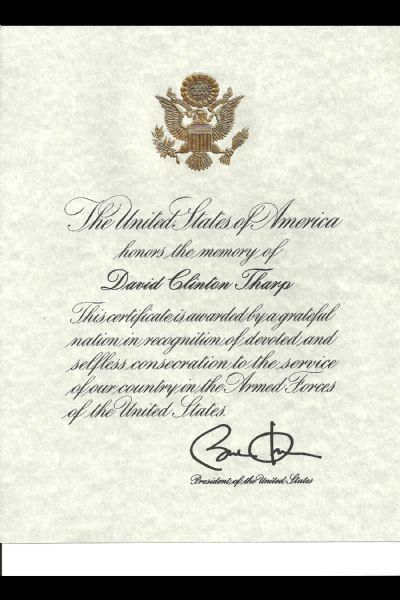 The United States of America
honors the memory of
David Clinton Tharp
This certificate is awarded by a grateful
nation in recognition of devoted and
selfless consecration to the service
of our country in the Armed Forces
of the United States.
President of the United States